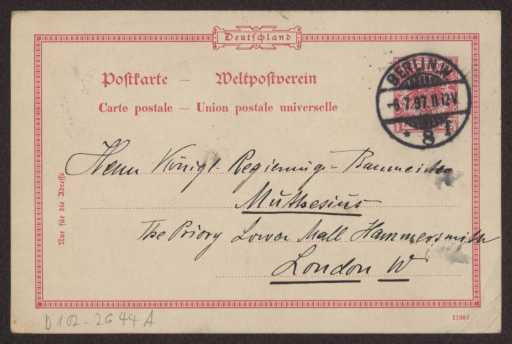 Deutschland
Postkarte — Weltpostverein
Carte postale — Union postale universelle
BERLIN.W
-6.7.97.11-12V
* 8 f
Herrn Königl. Regierungs-Baumeister
Muthesius
The Priory Lower Mall Hammersmith
London W
Nur für die Adresse
D 102-2644 A